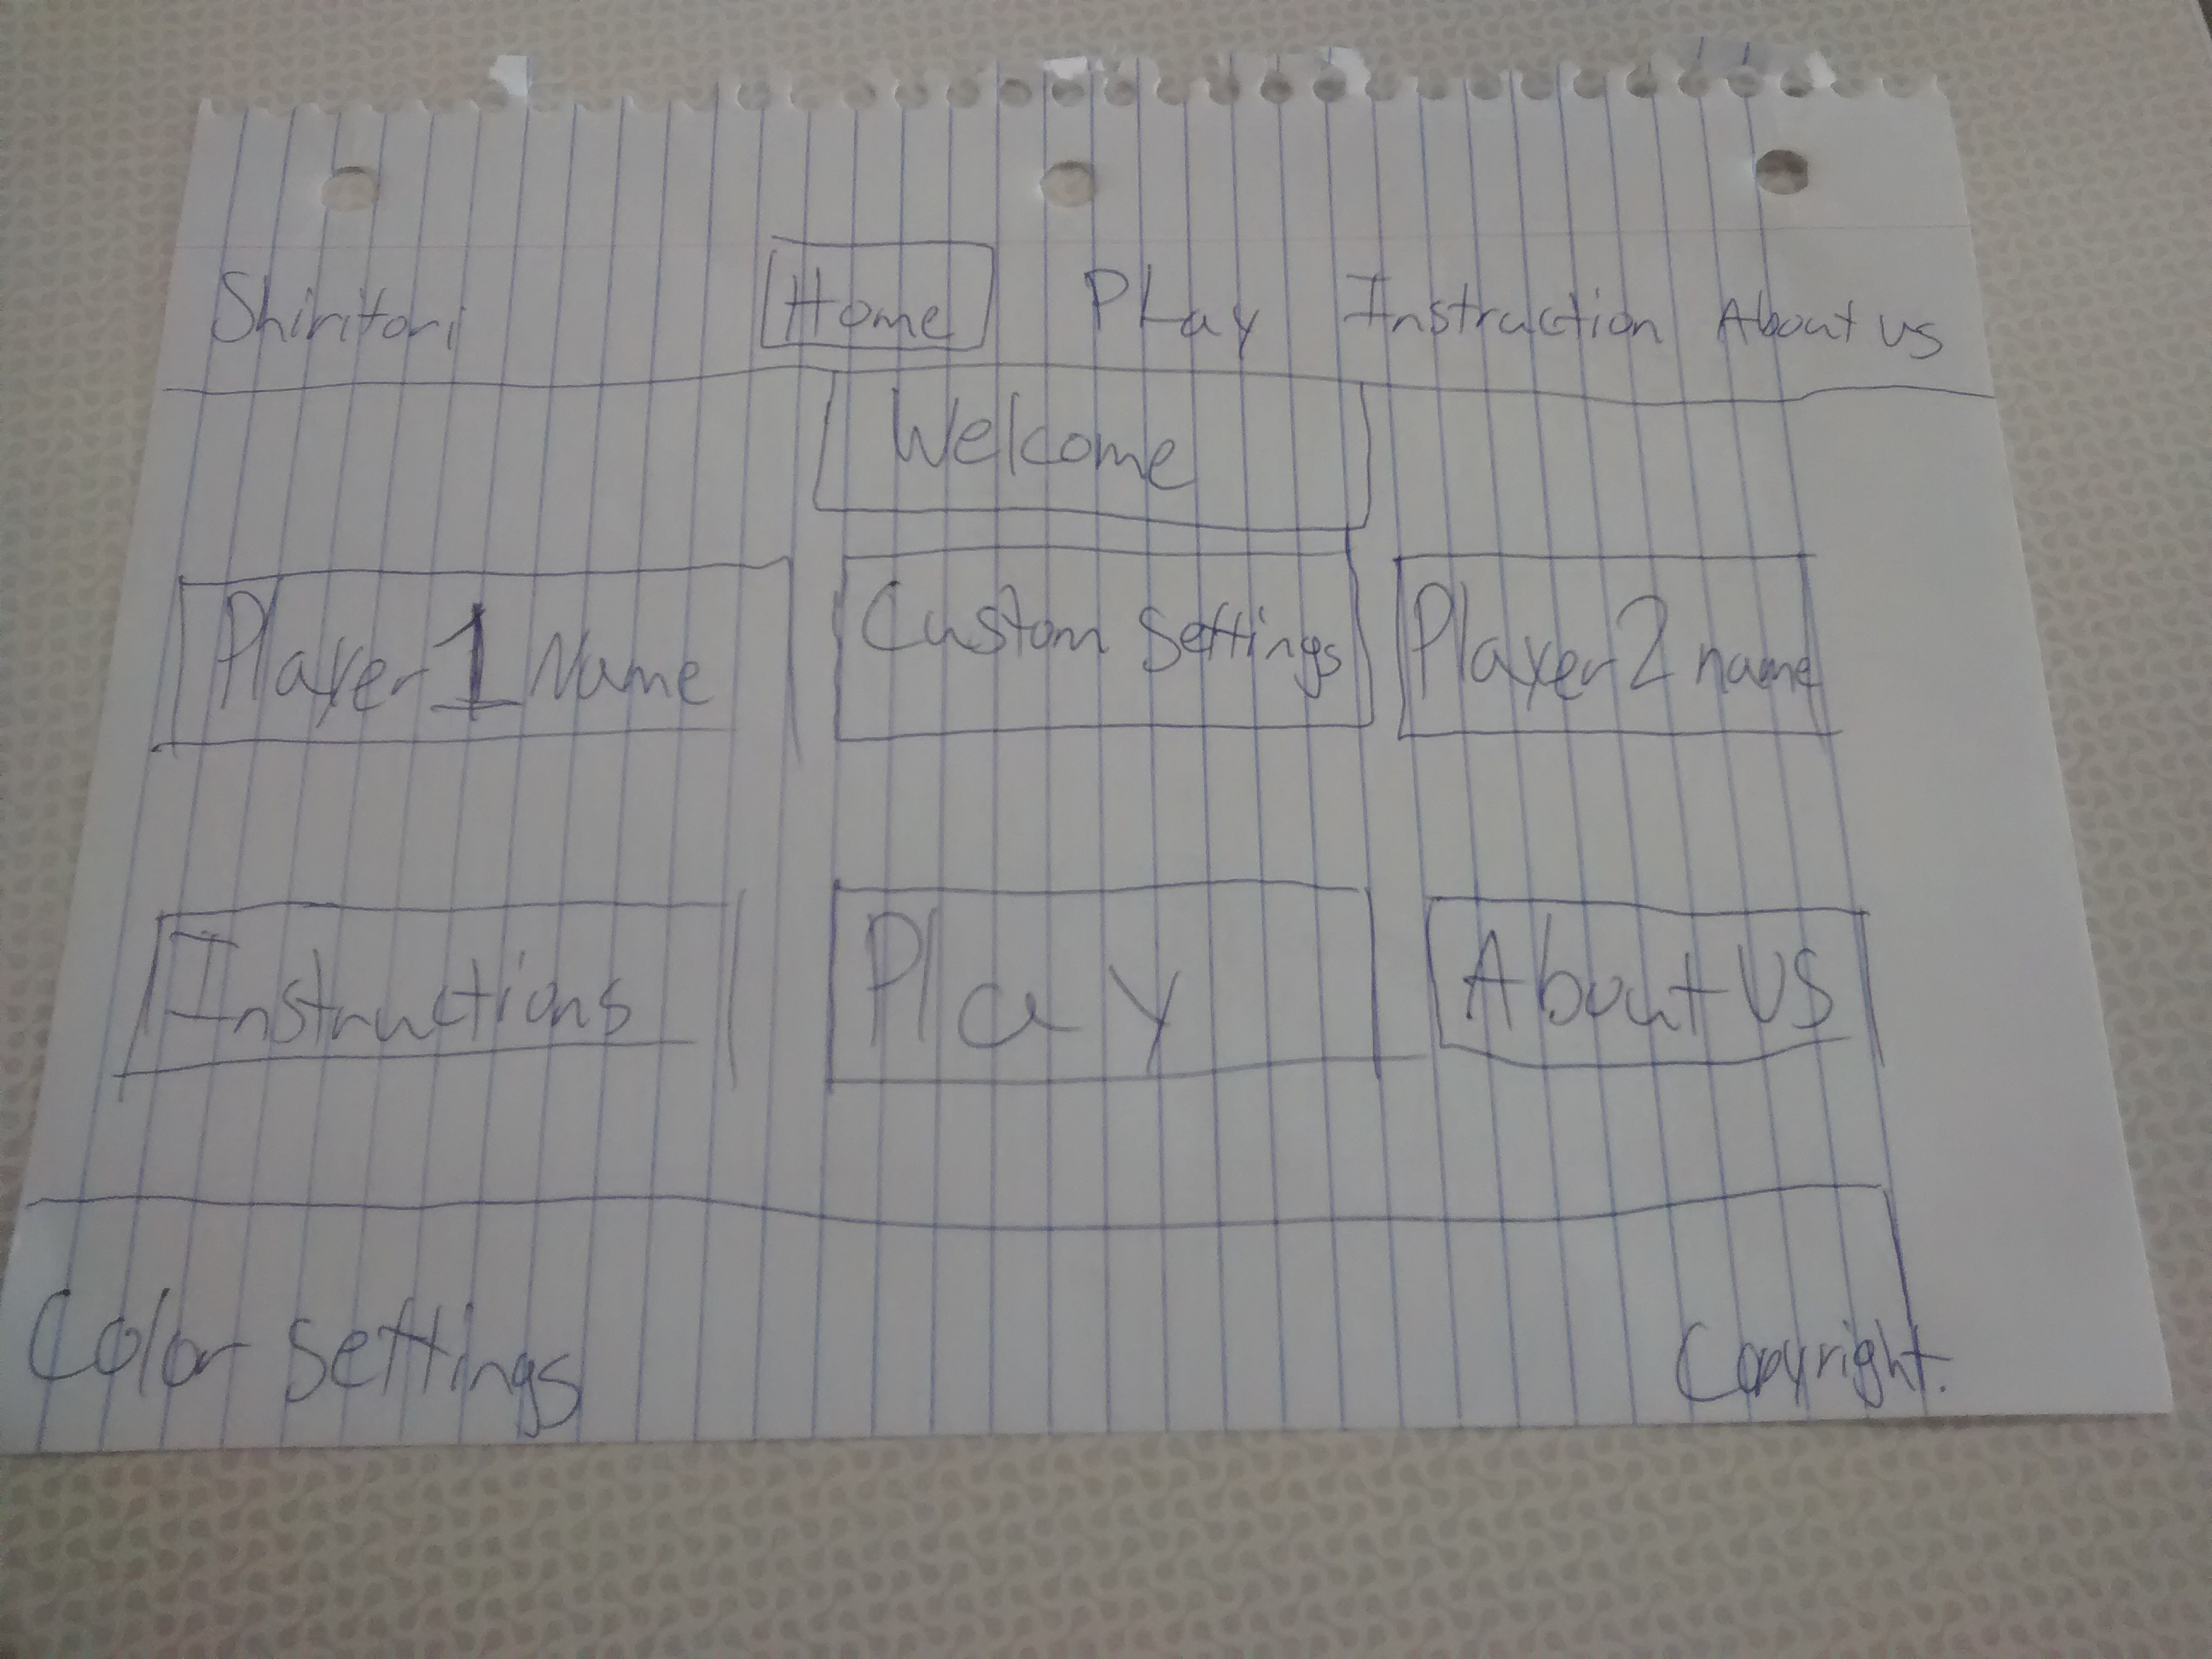 Shiritori Home Play Instruction About us
Welcome
Player 1 Name Custom Settings Player 2 name
Instructions Play About US
Color Settings Copyright.